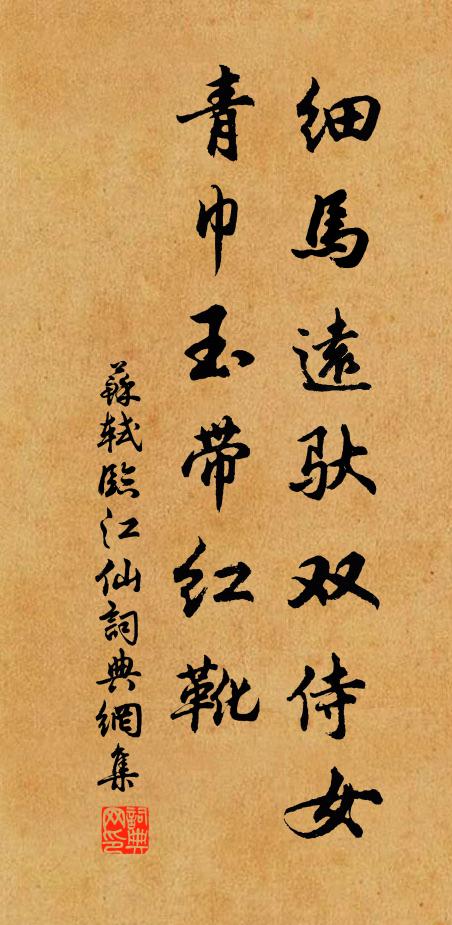 细馬遠馱双侍女
青巾玉带红靴
蘇軾臨江仙詞典網集
詞典网印